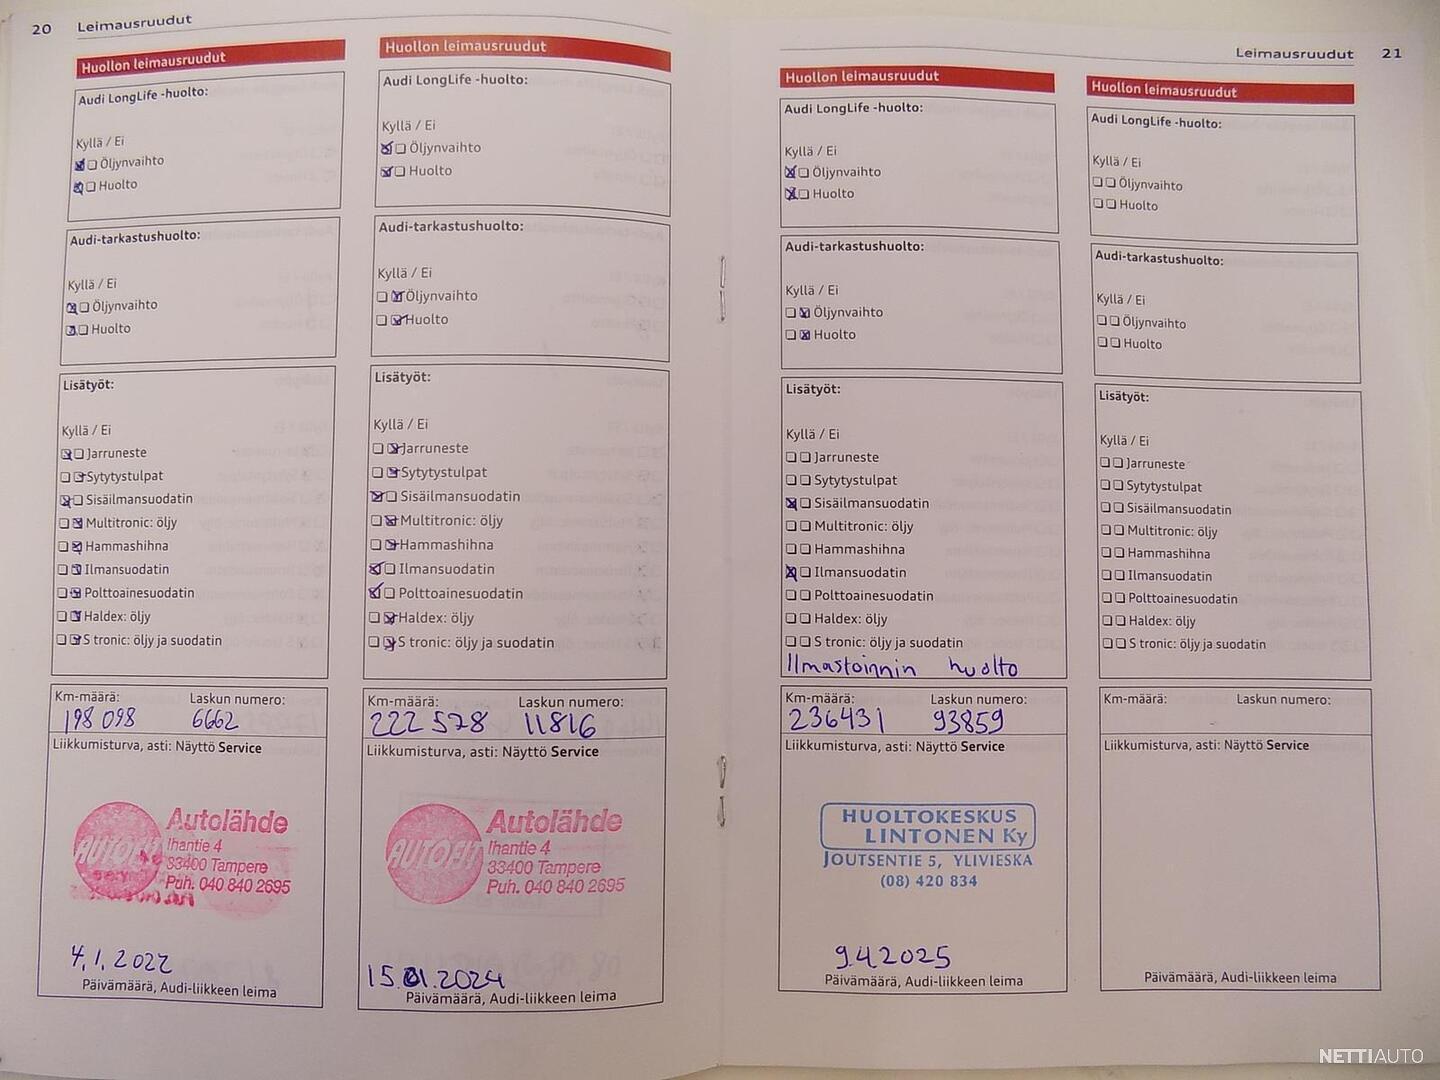 20 Leimausruudut
Huollon leimausruudut
Audi LongLife -huolto:
Kyllä / Ei
Öljynvaihto
Huolto
Audi-tarkastushuolto:
Kyllä / Ei
Öljynvaihto
Huolto
Lisätyöt:
Kyllä / Ei
Jarruneste
Sytytystulpat
Sisäilmansuodatin
Multitronic: öljy
Hammashihna
Ilmansuodatin
Polttoainesuodatin
Haldex: öljy
S tronic: öljy ja suodatin
Km-määrä: Laskun numero:
198 098 6662
Liikkumisturva, asti: Näyttö Service
Autolähde
AUTOFIT
Ihantie 4
33400 Tampere
Puh. 040 840 2695
4.1.2022
Päivämäärä, Audi-liikkeen leima
Huollon leimausruudut
Audi LongLife -huolto:
Kyllä / Ei
Öljynvaihto
Huolto
Audi-tarkastushuolto:
Kyllä / Ei
Öljynvaihto
Huolto
Lisätyöt:
Kyllä / Ei
Jarruneste
Sytytystulpat
Sisäilmansuodatin
Multitronic: öljy
Hammashihna
Ilmansuodatin
Polttoainesuodatin
Haldex: öljy
S tronic: öljy ja suodatin
Km-määrä: Laskun numero:
222 578 11816
Liikkumisturva, asti: Näyttö Service
Autolähde
AUTOFIT
Ihantie 4
33400 Tampere
Puh. 040 840 2695
15.01.2024
Päivämäärä, Audi-liikkeen leima
Leimausruudut 21
Huollon leimausruudut
Audi LongLife -huolto:
Kyllä / Ei
Öljynvaihto
Huolto
Audi-tarkastushuolto:
Kyllä / Ei
Öljynvaihto
Huolto
Lisätyöt:
Kyllä / Ei
Jarruneste
Sytytystulpat
Sisäilmansuodatin
Multitronic: öljy
Hammashihna
Ilmansuodatin
Polttoainesuodatin
Haldex: öljy
S tronic: öljy ja suodatin
Ilmastoinnin huolto
Km-määrä: Laskun numero:
236431 93859
Liikkumisturva, asti: Näyttö Service
HUOLTOKESKUS
LINTONEN Ky
JOUTSENTIE 5, YLIVIESKA
(08) 420 834
9.4.2025
Päivämäärä, Audi-liikkeen leima
Huollon leimausruudut
Audi LongLife -huolto:
Kyllä / Ei
Öljynvaihto
Huolto
Audi-tarkastushuolto:
Kyllä / Ei
Öljynvaihto
Huolto
Lisätyöt:
Kyllä / Ei
Jarruneste
Sytytystulpat
Sisäilmansuodatin
Multitronic: öljy
Hammashihna
Ilmansuodatin
Polttoainesuodatin
Haldex: öljy
S tronic: öljy ja suodatin
Km-määrä: Laskun numero:
Liikkumisturva, asti: Näyttö Service
Päivämäärä, Audi-liikkeen leima
NETTIAUTO